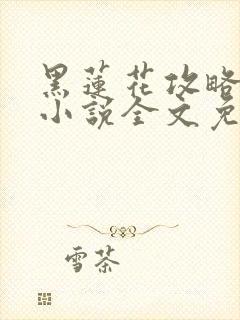 黑蓮花攻略
小說全文免
雪茶